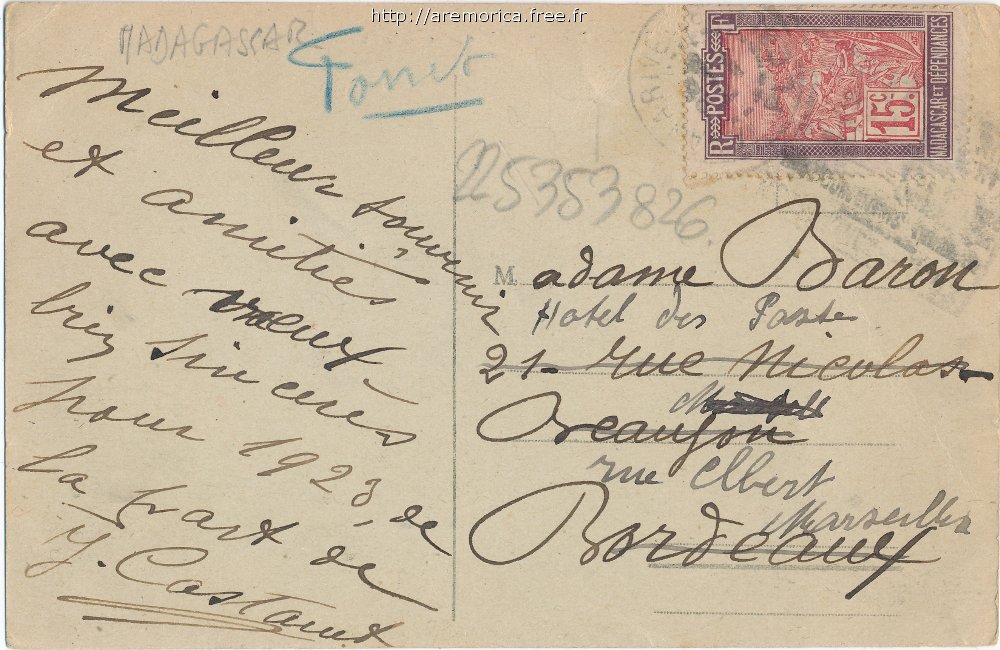 http://aremorica.free.fr
MADAGASCAR
Meilleur souvenir
et amitiés
avec vœux
bien sincères
pour 1923, de
la part de
J. Castaint
25353826.
POSTES
RF
15c
MADAGASCAR ET DÉPENDANCES
Madame Baron
Hotel des Poste
21 rue Nicolas
Beaujon
rue Albert
Marseille
Bordeaux